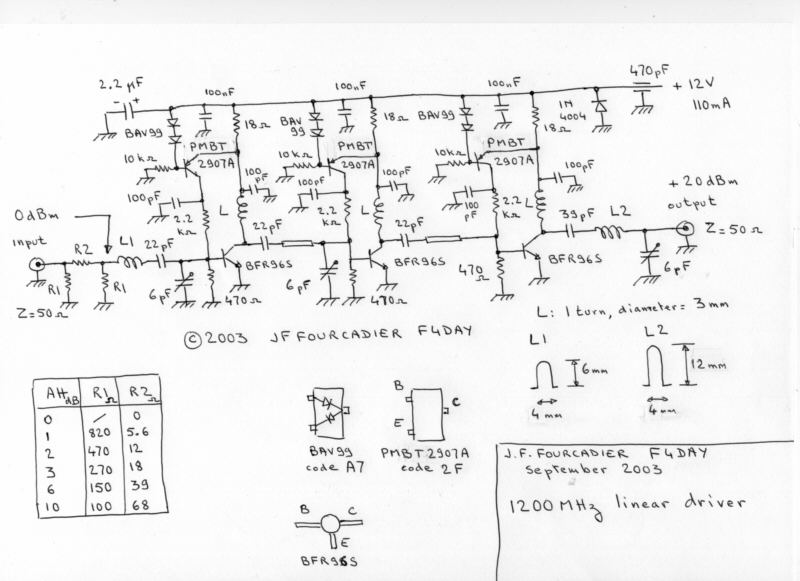 2.2 µF
- +
100nF
100nF
100nF
470pF
+ 12V
110mA
BAV99
18Ω
BAV
99
18Ω
BAV99
18Ω
1N
4004
PMBT
2907A
PMBT
2907A
PMBT
2907A
10kΩ
10kΩ
10kΩ
100
pF
100pF
100pF
100pF
100pF
100
pF
2.2
kΩ
2.2
kΩ
2.2
kΩ
L
L
L
0dBm
input
R2
L1
22pF
22pF
22pF
39pF
L2
+20dBm
output
Z=50Ω
R1
R1
Z=50Ω
6pF
470Ω
BFR96S
6pF
470Ω
BFR96S
470
Ω
BFR96S
6pF
© 2003 JF FOURCADIER F4DAY
L: 1 turn, diameter= 3mm
L1
6mm
4mm
L2
12mm
4mm
AttdB R1Ω R2Ω
0 / 0
1 820 5.6
2 470 12
3 270 18
6 150 39
10 100 68
BAV99
code A7
B
E
C
PMBT2907A
code 2F
B
C
E
BFR96S
J.F. FOURCADIER F4DAY
september 2003
1200MHz linear driver